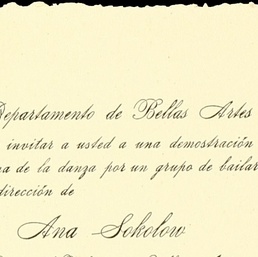 Departamento de Bellas Artes
invitar a usted a una demostración
de la danza por un grupo de bailar
dirección de
Ana Sokolow